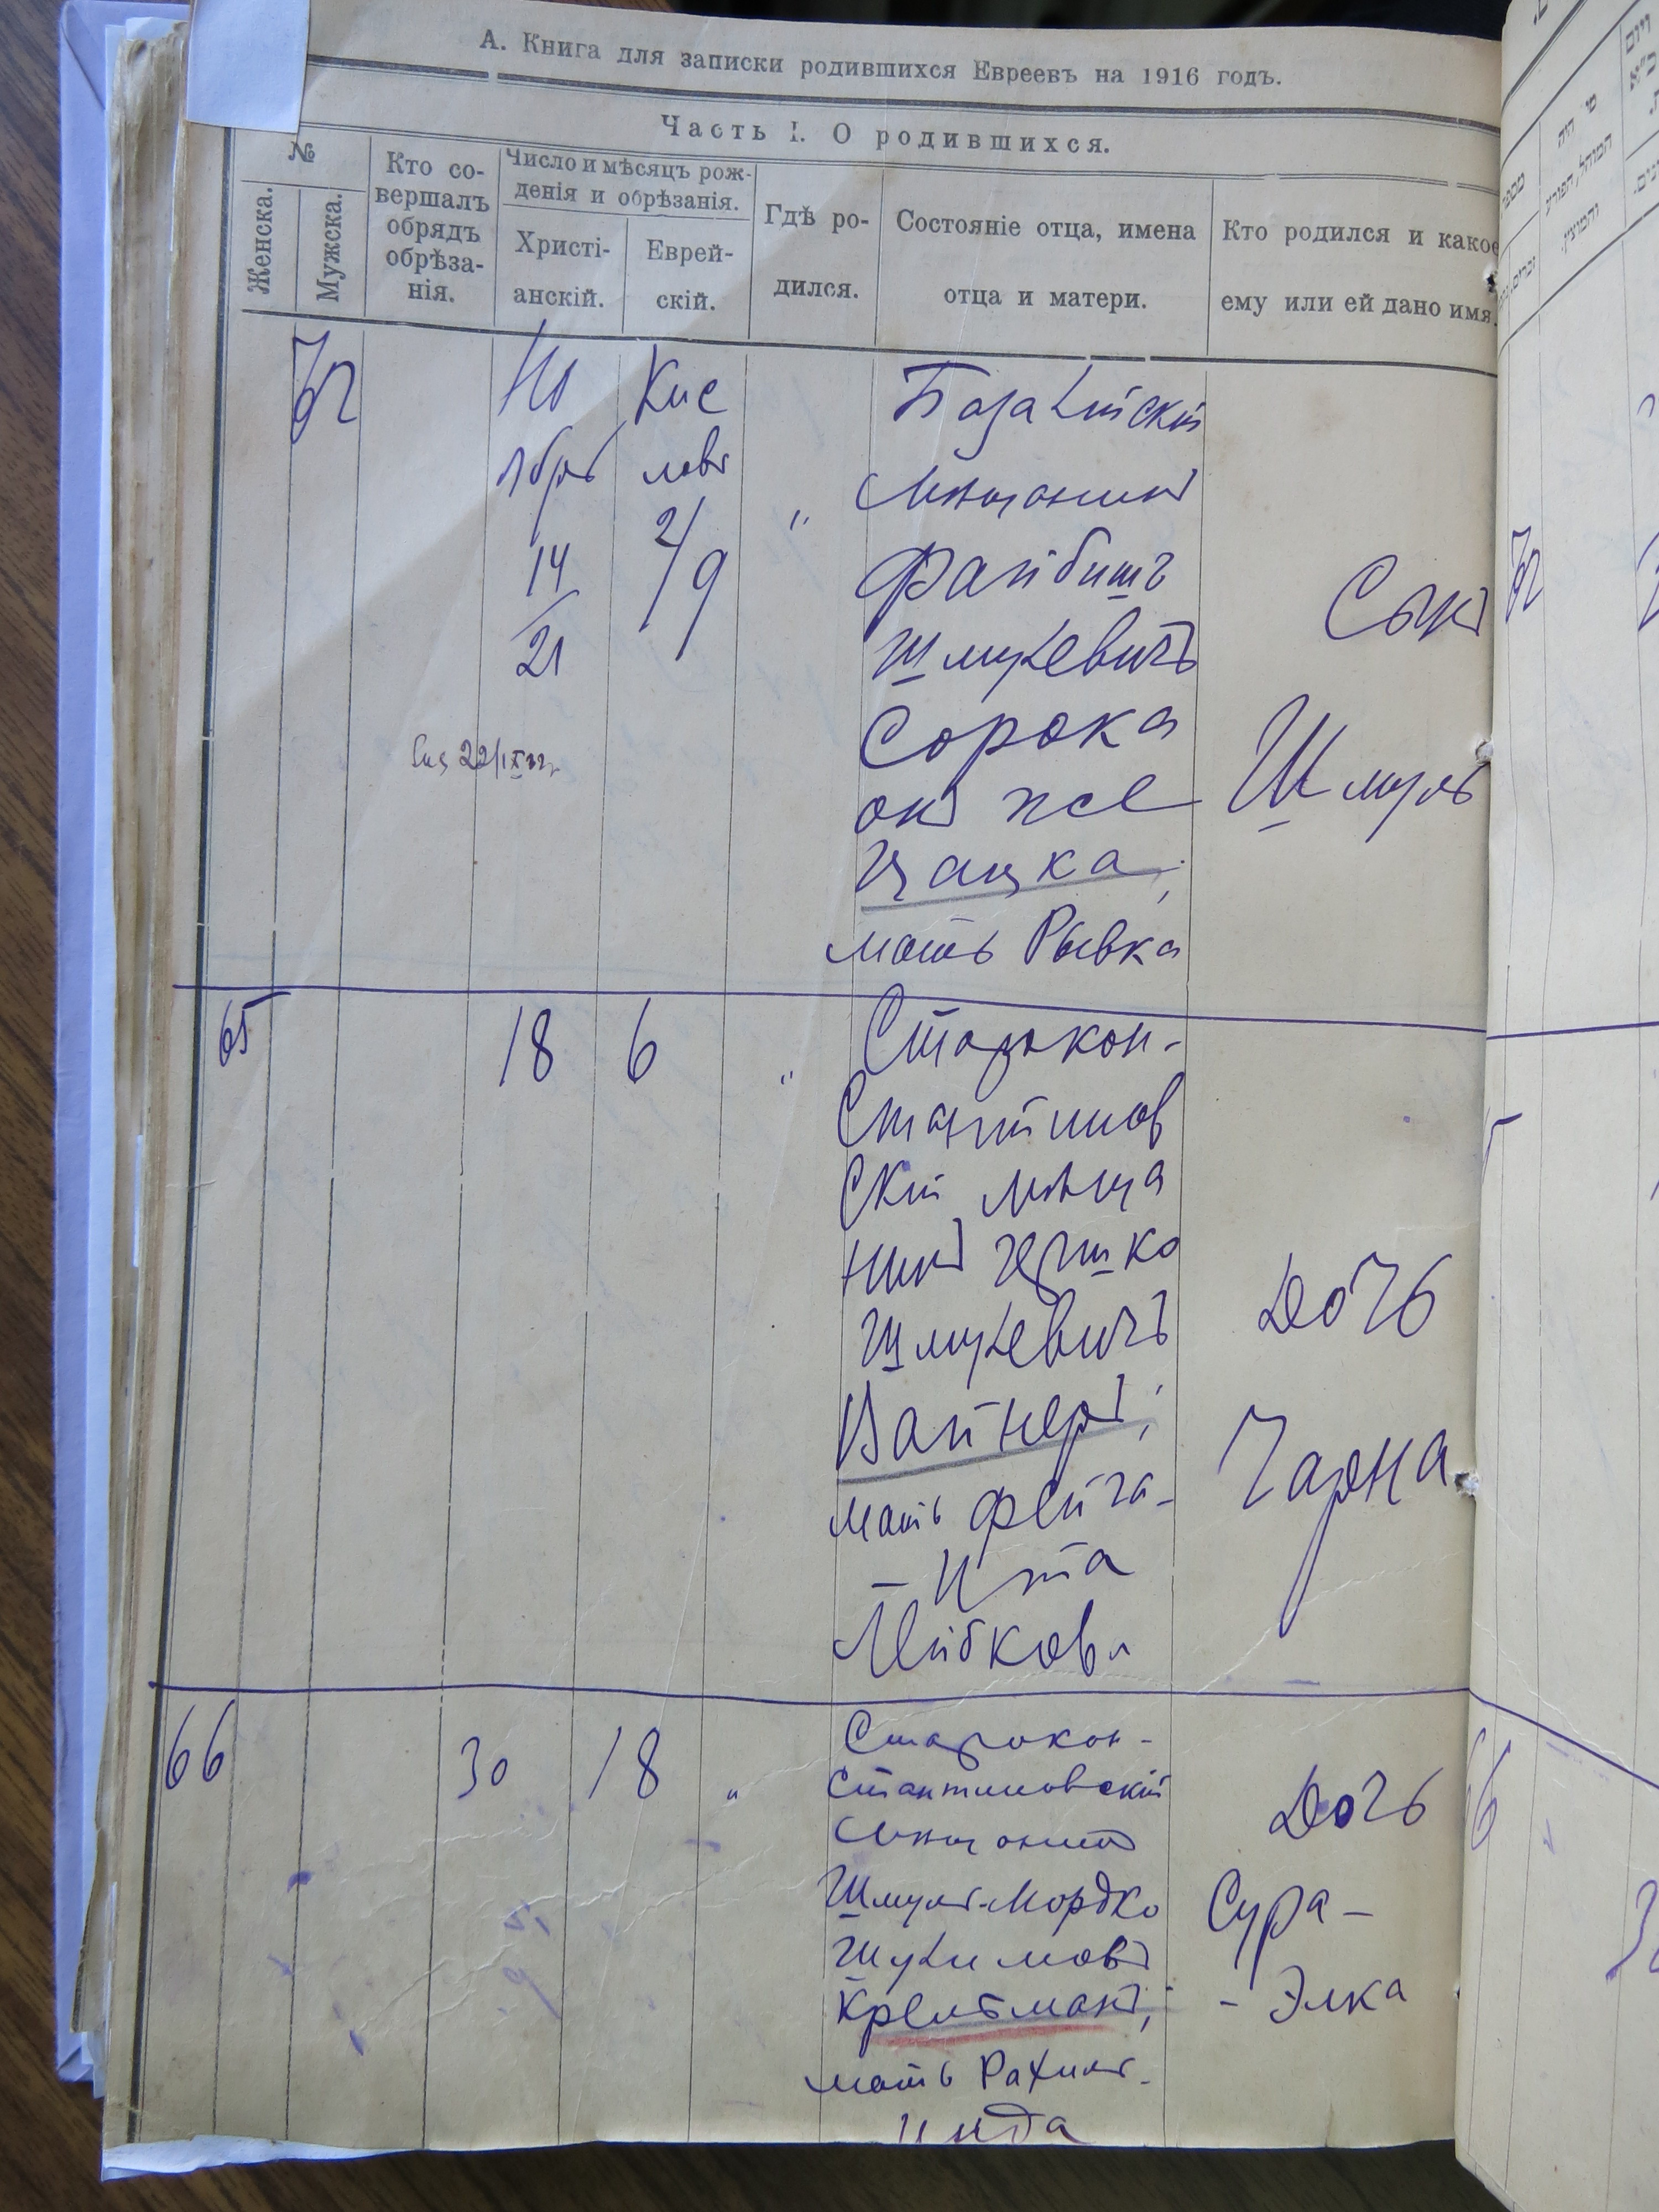 А. Книга для записки родившихся Евреевъ на 1916 годъ.
Часть I. О родившихся.
№
Женска.
Мужска.
Кто со-
вершалъ
обрядъ
обрѣза-
нія.
Число и мѣсяцъ рож-
денія и обрѣзанія.
Христі-
анскій.
Еврей-
скій.
Гдѣ ро-
дился.
Состояніе отца, имена
отца и матери.
Кто родился и какое
ему или ей дано имя.
Но
ября
14
21
Кис
лова
2/9
"
Базалійскій
мѣщанинъ
Файбишъ
Шмулевичъ
Сорока
онъ же
Цацка;
мать Рывка
Сынъ
Шмуль
65
18
6
"
Старокон-
стантинов
скій мѣща
нинъ Гершко
Шмулевичъ
Вайнеръ;
мать Фейга-
- Ита
Лейбкова
Дочь
Чарна
66
30
18
"
Старокон-
стантиновскій
мѣщанинъ
Шмуль-Мордко
Шулимовъ
Крельманъ;
мать Рахиль-
Инда
Дочь
Сура-
- Элка